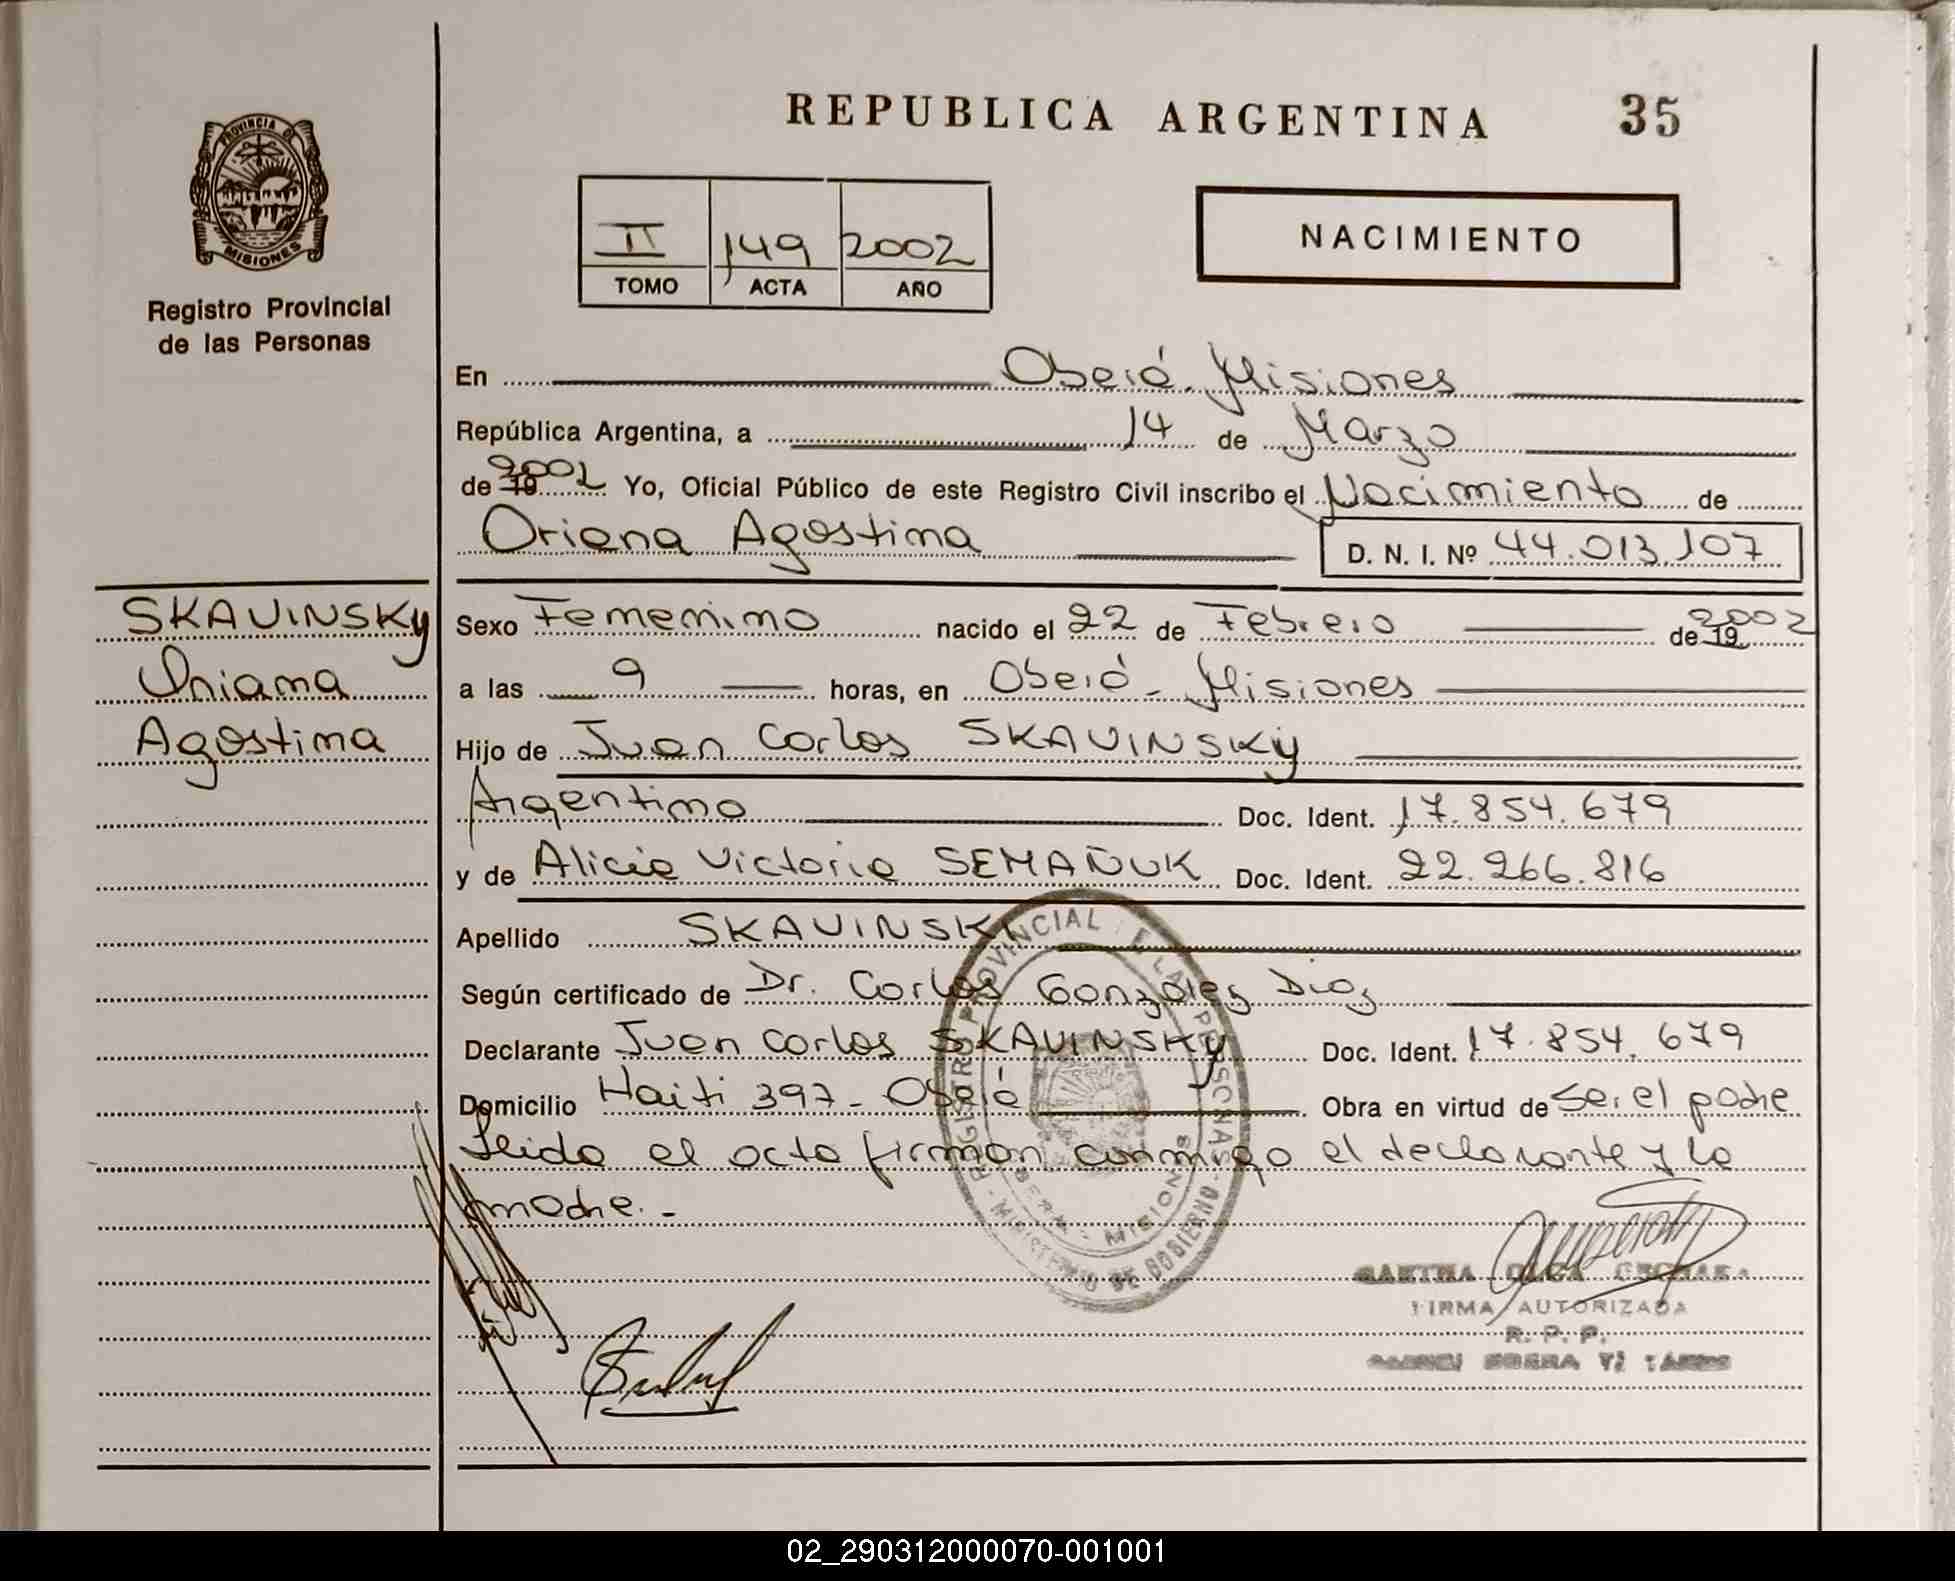 PROVINCIA DE
MISIONES
Registro Provincial
de las Personas
REPUBLICA ARGENTINA 35
II 149 2002
TOMO ACTA AÑO
NACIMIENTO
En Oberá - Misiones
República Argentina, a 14 de Marzo
de 19 2002 Yo, Oficial Público de este Registro Civil inscribo el Nacimiento de
Oriana Agostina D. N. I. Nº 44.013.107
SKAVINSKy
Oriana
Agostina
Sexo Femenino nacido el 22 de Febrero de 19 2002
a las 9 horas, en Oberá - Misiones
Hijo de Juan Carlos SKAVINSKy
Argentino Doc. Ident. 17.854.679
y de Alicia Victoria SEMAÑUK Doc. Ident. 22.266.816
Apellido SKAVINSKy
Según certificado de Dr. Carlos Gonzáles Díaz
Declarante Juan Carlos SKAVINSKy Doc. Ident. 17.854.679
Domicilio Haiti 397 - Oberá Obra en virtud de ser el padre
Leida el acta firman conmigo el declarante y la
madre.-
REGISTRO PROVINCIAL DE LAS PERSONAS
MINISTERIO DE GOBIERNO
OBERA - MISIONES
FIRMA AUTORIZADA
R. P. P.
02_290312000070-001001